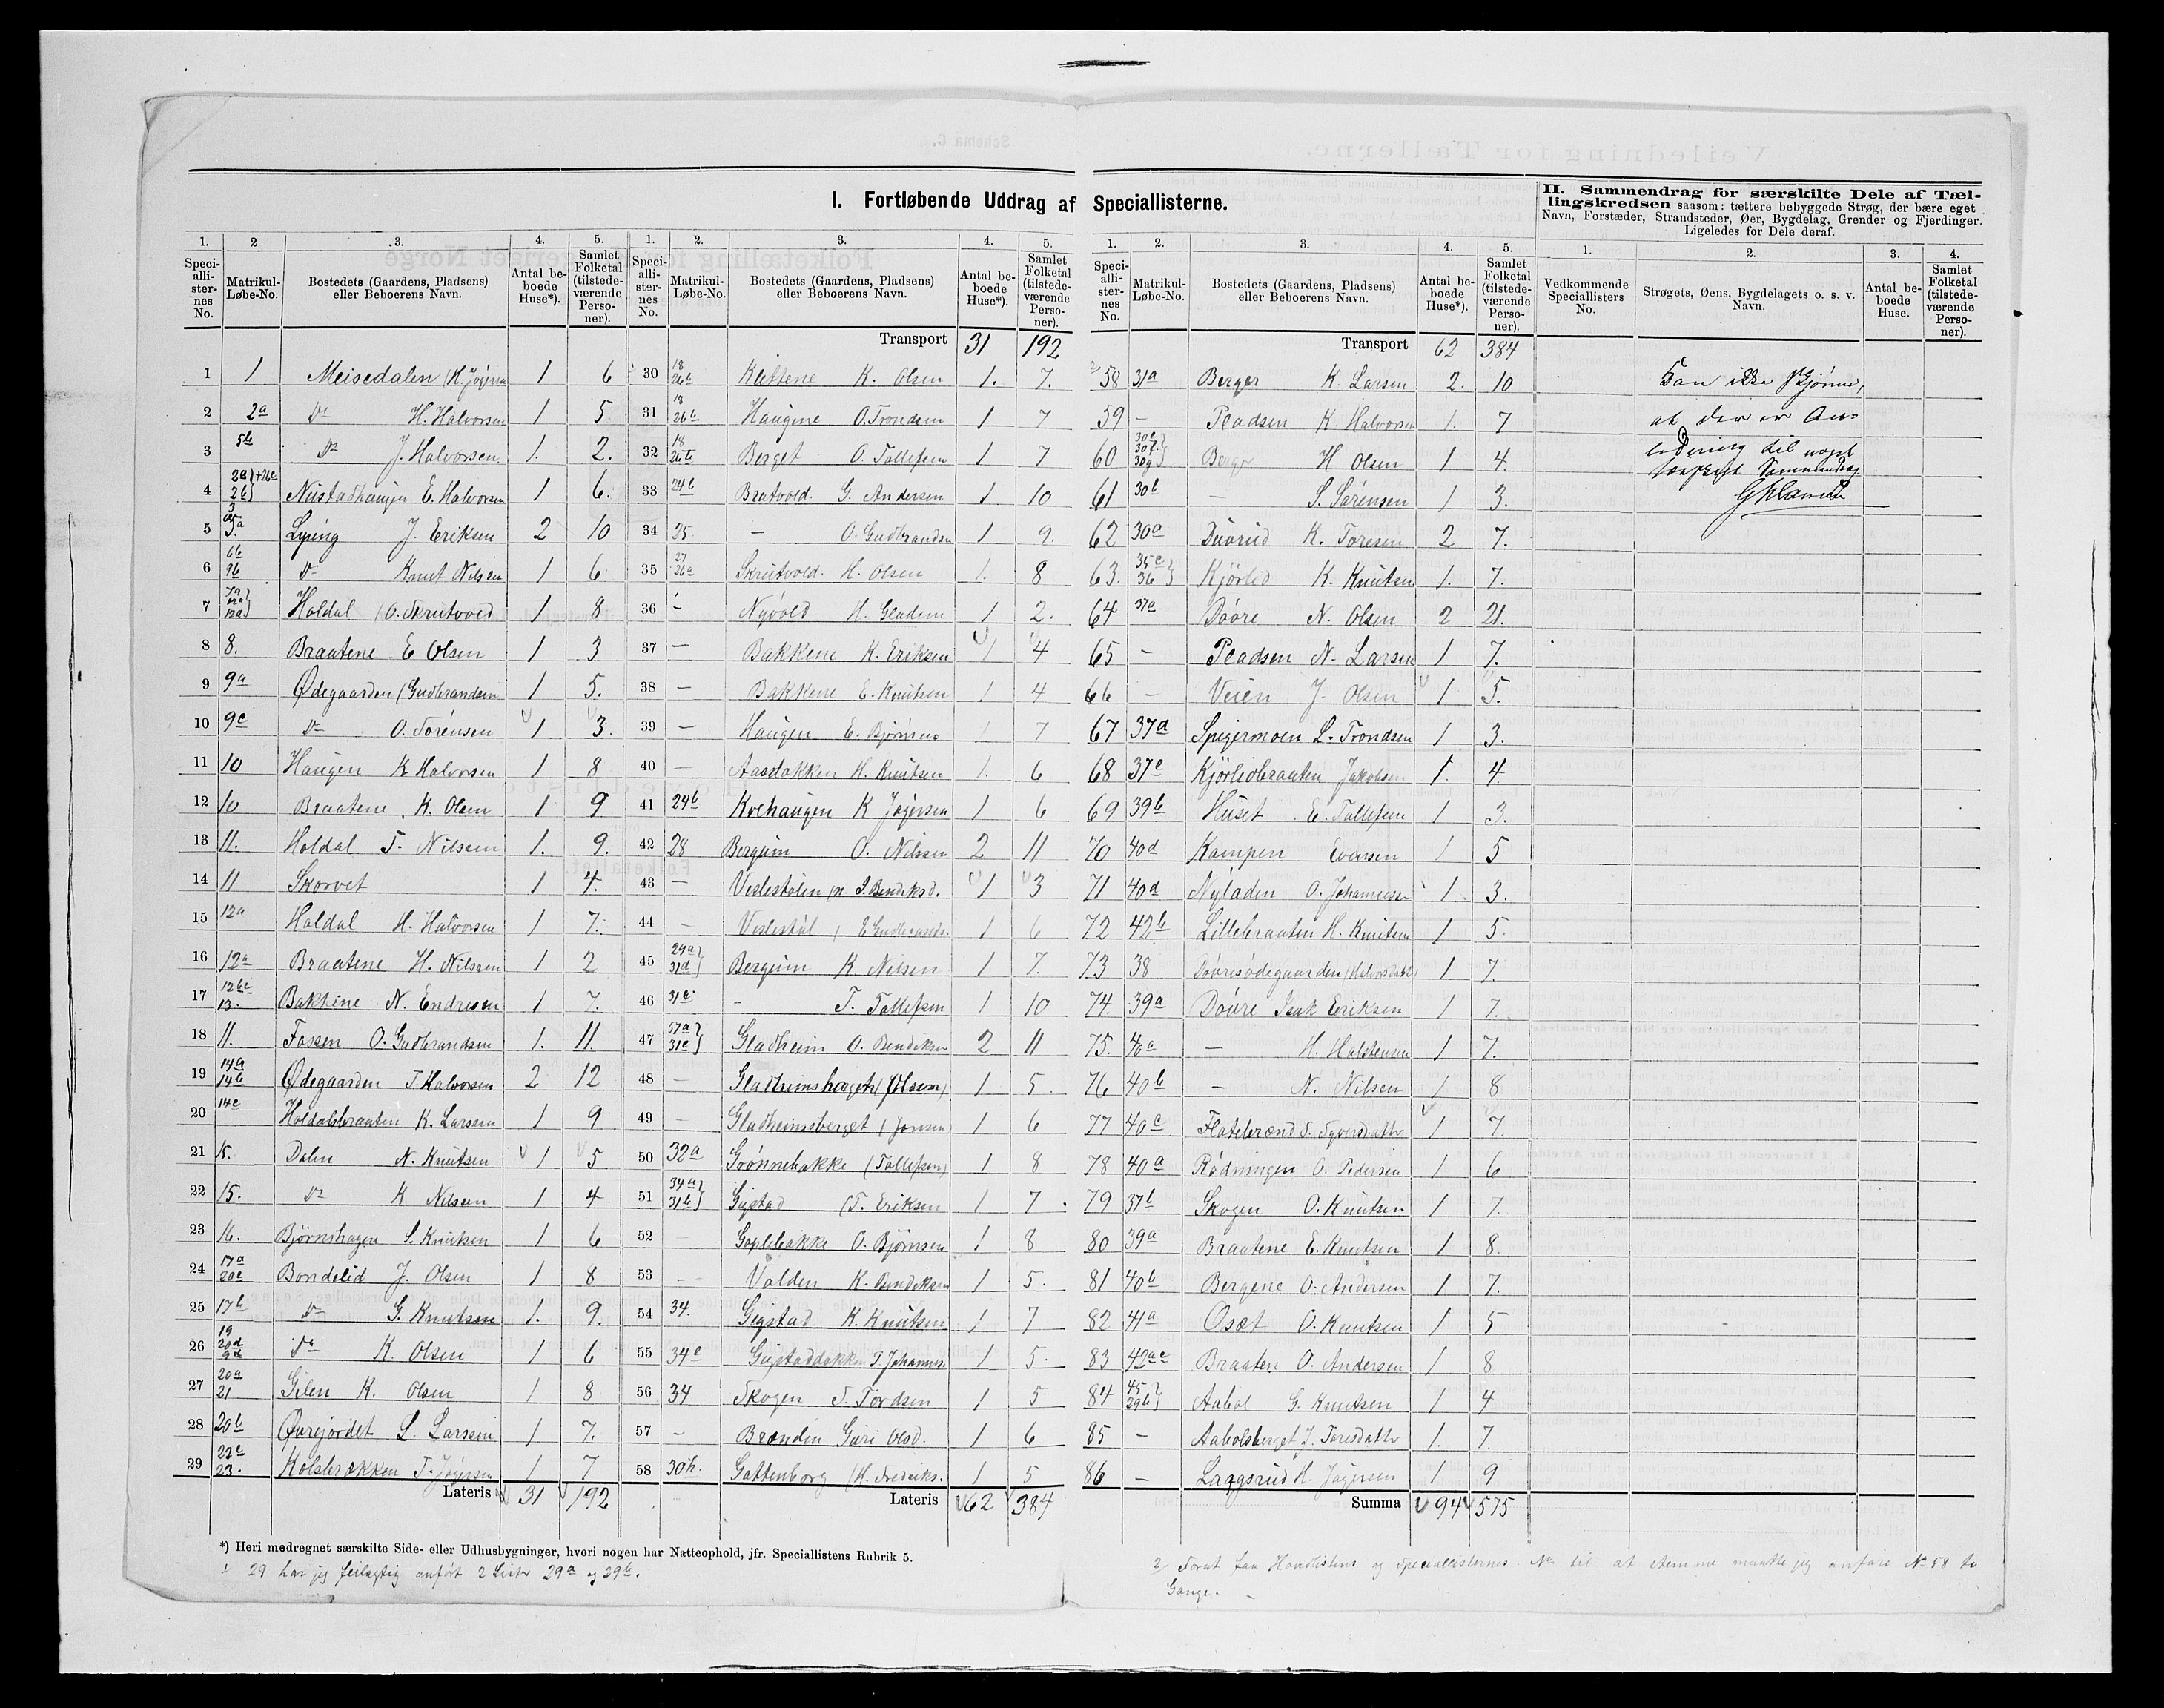 I. Fortløbende Uddrag af Speciallisterne.
II. Sammendrag for særskilte Dele af Tæl-
lingskredsen saasom: tættere bebyggede Strøg, der bære eget
Navn, Forstæder, Strandsteder, Øer, Bygdelag, Grender og Fjerdinger.
Ligeledes for Dele deraf.
1. 2 3. 4. 5.
Speciallisternes No. Matrikul-Løbe-No. Bostedets (Gaardens, Pladsens) eller Beboerens Navn. Antal beboede Huse*). Samlet Folketal (tilstedeværende Personer).
1 1 Meisedalen (K. 1 6
2 2a Do H. Halvorsen 1 5
3 5b Do J. Halvorsen. 1. 2.
4 2b E. Halvorsen 1 6.
5 5a J. Eriksen 2 10
6 6b 9b Do Knut Nilsen 1 6
7 7a 12a Haldal (O. Skrutvold 1 8
8 8. Braatene E Olsen 1 3
9 9a Ødegaarden (Gudbrandsen 1 5.
10 9c Do O. Sørensen 1 3.
11 10 Haugen K Halvorsen 1 8
12 10 Braatene K. Olsen 1 9
13 11. Haldal T. Nilsen 1. 9.
14 11 Skorvet 1 4.
15 12a Haldal H. Halvorsen 1 7.
16 12a Braatene H. Nilssen 1 2
17 12bc 13. Bakkene N. Endresen 1 7.
18 11. Fossen O. Gudbrandsen 1. 11.
19 14a 14b Ødegaarden T Halvorsen 2 12
20 14c Haldalsbraaten K. Larsen 1 9
21 15. Dalen N. Knutsen 1 5
22 15. Do K Nilsen 1 4
23 16. Bjørnshagen S. Knutsen 1 6
24 17a 20c Bondelid J. Olsen 1 8
25 17b Do G. Knutsen 1. 9.
26 19 20d Do K. Olsen 1 6
27 20a 21 Gilen K. Olsen 1 8
28 20b Øvrejordet L. Larssen 1 7.
29 22c 23. Kolsbrækken T. 1 7
Lateris 31 192
1. 2. 3. 4. 5.
Speciallisternes No. Matrikul-Løbe-No. Bostedets (Gaardens, Pladsens) eller Beboerens Navn. Antal beboede Huse*). Samlet Folketal (tilstedeværende Personer).
Transport 31 192
30 18 26c Klettene K. Olsen 1. 7.
31 18 26b Haugene O. Trondsen 1 7
32 18 Berget O. Tollefsen 1 7
33 24b Bratvold. G. Andersen 1 10
34 25 - O. Gudbrandsen 1 9.
35 27 26a Skrutvold. H. Olsen 1. 8
36 - Nyvold H. 1 2.
37 - Bakkene K. Eriksen 1 4
38 - Bakkene E. Knutsen 1 4
39 - Haugen E. Bjørnsen 1 7
40 - Aasdokken H. Knutsen 1. 6
41 24b K 1 6
42 28 Bergum O. Nilssen 2 11
43 - Veslestølen 1 3
44 - Veslestøl 1 6
45 29a 31d Bergum K Nilsen 1 7.
46 31c - T. Tollefsen 1 10
47 57a 31e Gladheim O. Bendiksen 2 11
48 - Gladheimshaget (Olsen) 1 5.
49 - Gladheimsberget (Jonsen) 1 6
50 32a Grønnebakke (Tollefsen) 1 8
51 34a 31b Gigstad (T. Eriksen 1 7.
52 - Goplebakke O. Bjørnsen 1 8
53 - Volden K. Bendiksen 1. 5.
54 34. Gigstad K. Knutsen 1 7
55 34c Gigstaddokken T. Johannes. 1 5.
56 34 Skogen T. Tordsen 1 5
57 - Brænden Guri Olsd. 1 6
58 30h. Gottenborg (H. Fredriks. 1 5
Lateris 62 384
1. 2. 3. 4. 5.
Speciallisternes No. Matrikul-Løbe-No. Bostedets (Gaardens, Pladsens) eller Beboerens Navn. Antal beboede Huse*). Samlet Folketal (tilstedeværende Personer).
Transport 62 384
58 31a Berger K. Larsen 2. 10
59 - Pladsen K. Halvorsen 1. 7
60 30e 30f 30g Berger H Olsen 1 4.
61 30b - S. Sørensen 1 3.
62 30a K. Toresen 2 7.
63. 35c 36 Kjørlid K. Knutsen 1. 7.
64 37c Døvre N. Olsen 2 21.
65 - Pladsen N. Larsen 1 7.
66 - Veien J. Olsen 1 5.
67 37a Spigermoen L. Trondsen 1 3.
68 37c Kjørlidbraaten Jakobsen 1. 4.
69 39b Huset E. Tollefsen 1 3.
70 40d Kampen Eversen 1 5
71 40d Nyladen O. Johannesen 1 3.
72 42b Lillebraaten H. Knutsen 1 5.
73 38 Døvresødegaarden 1 7.
74. 39a Døvre Isak Eriksen 1 7.
75. 40a - H. Halstensen 1 7.
76 40b - N. Nilsen 1 8
77 40c Flatebrænd 1 7.
78 40a Rødningen O. Pedersen 1 6
79 37b Skogen O. Knutsen 1 7.
80 39a Braatene E. Knutsen 1 8.
81 40b Bergene O. Andersen 1 7.
82 41a Oset O. Knutsen 1 5
83 42ac Braaten O. Andersen 1 8
84 45 29b Aabol G. Knutsen 1 4
85 - Aabolsberget J. Toresdatter 1. 7.
86 - H. 1 9
Summa 94 575
1. 2. 3. 4.
Vedkommende Speciallisters No. Strøgets, Øens, Bygdelagets o. s. v. Navn. Antal beboede Huse. Samlet Folketal (tilstedeværende Personer).
Kan ikke skjønne,
at der er An-
ledning til noget
særskilt Sammendrag
*) Heri medregnet særskilte Side- eller Udhusbygninger, hvori nogen har Natteophold, jfr. Speciallistens Rubrik 5.
29 har jeg feilagtig anført 2 Lister 29a og 29b.
2 Forat faa Huslistens og Speciallisternes No til at stemme maatte jeg anføre No 58 to
Gange.